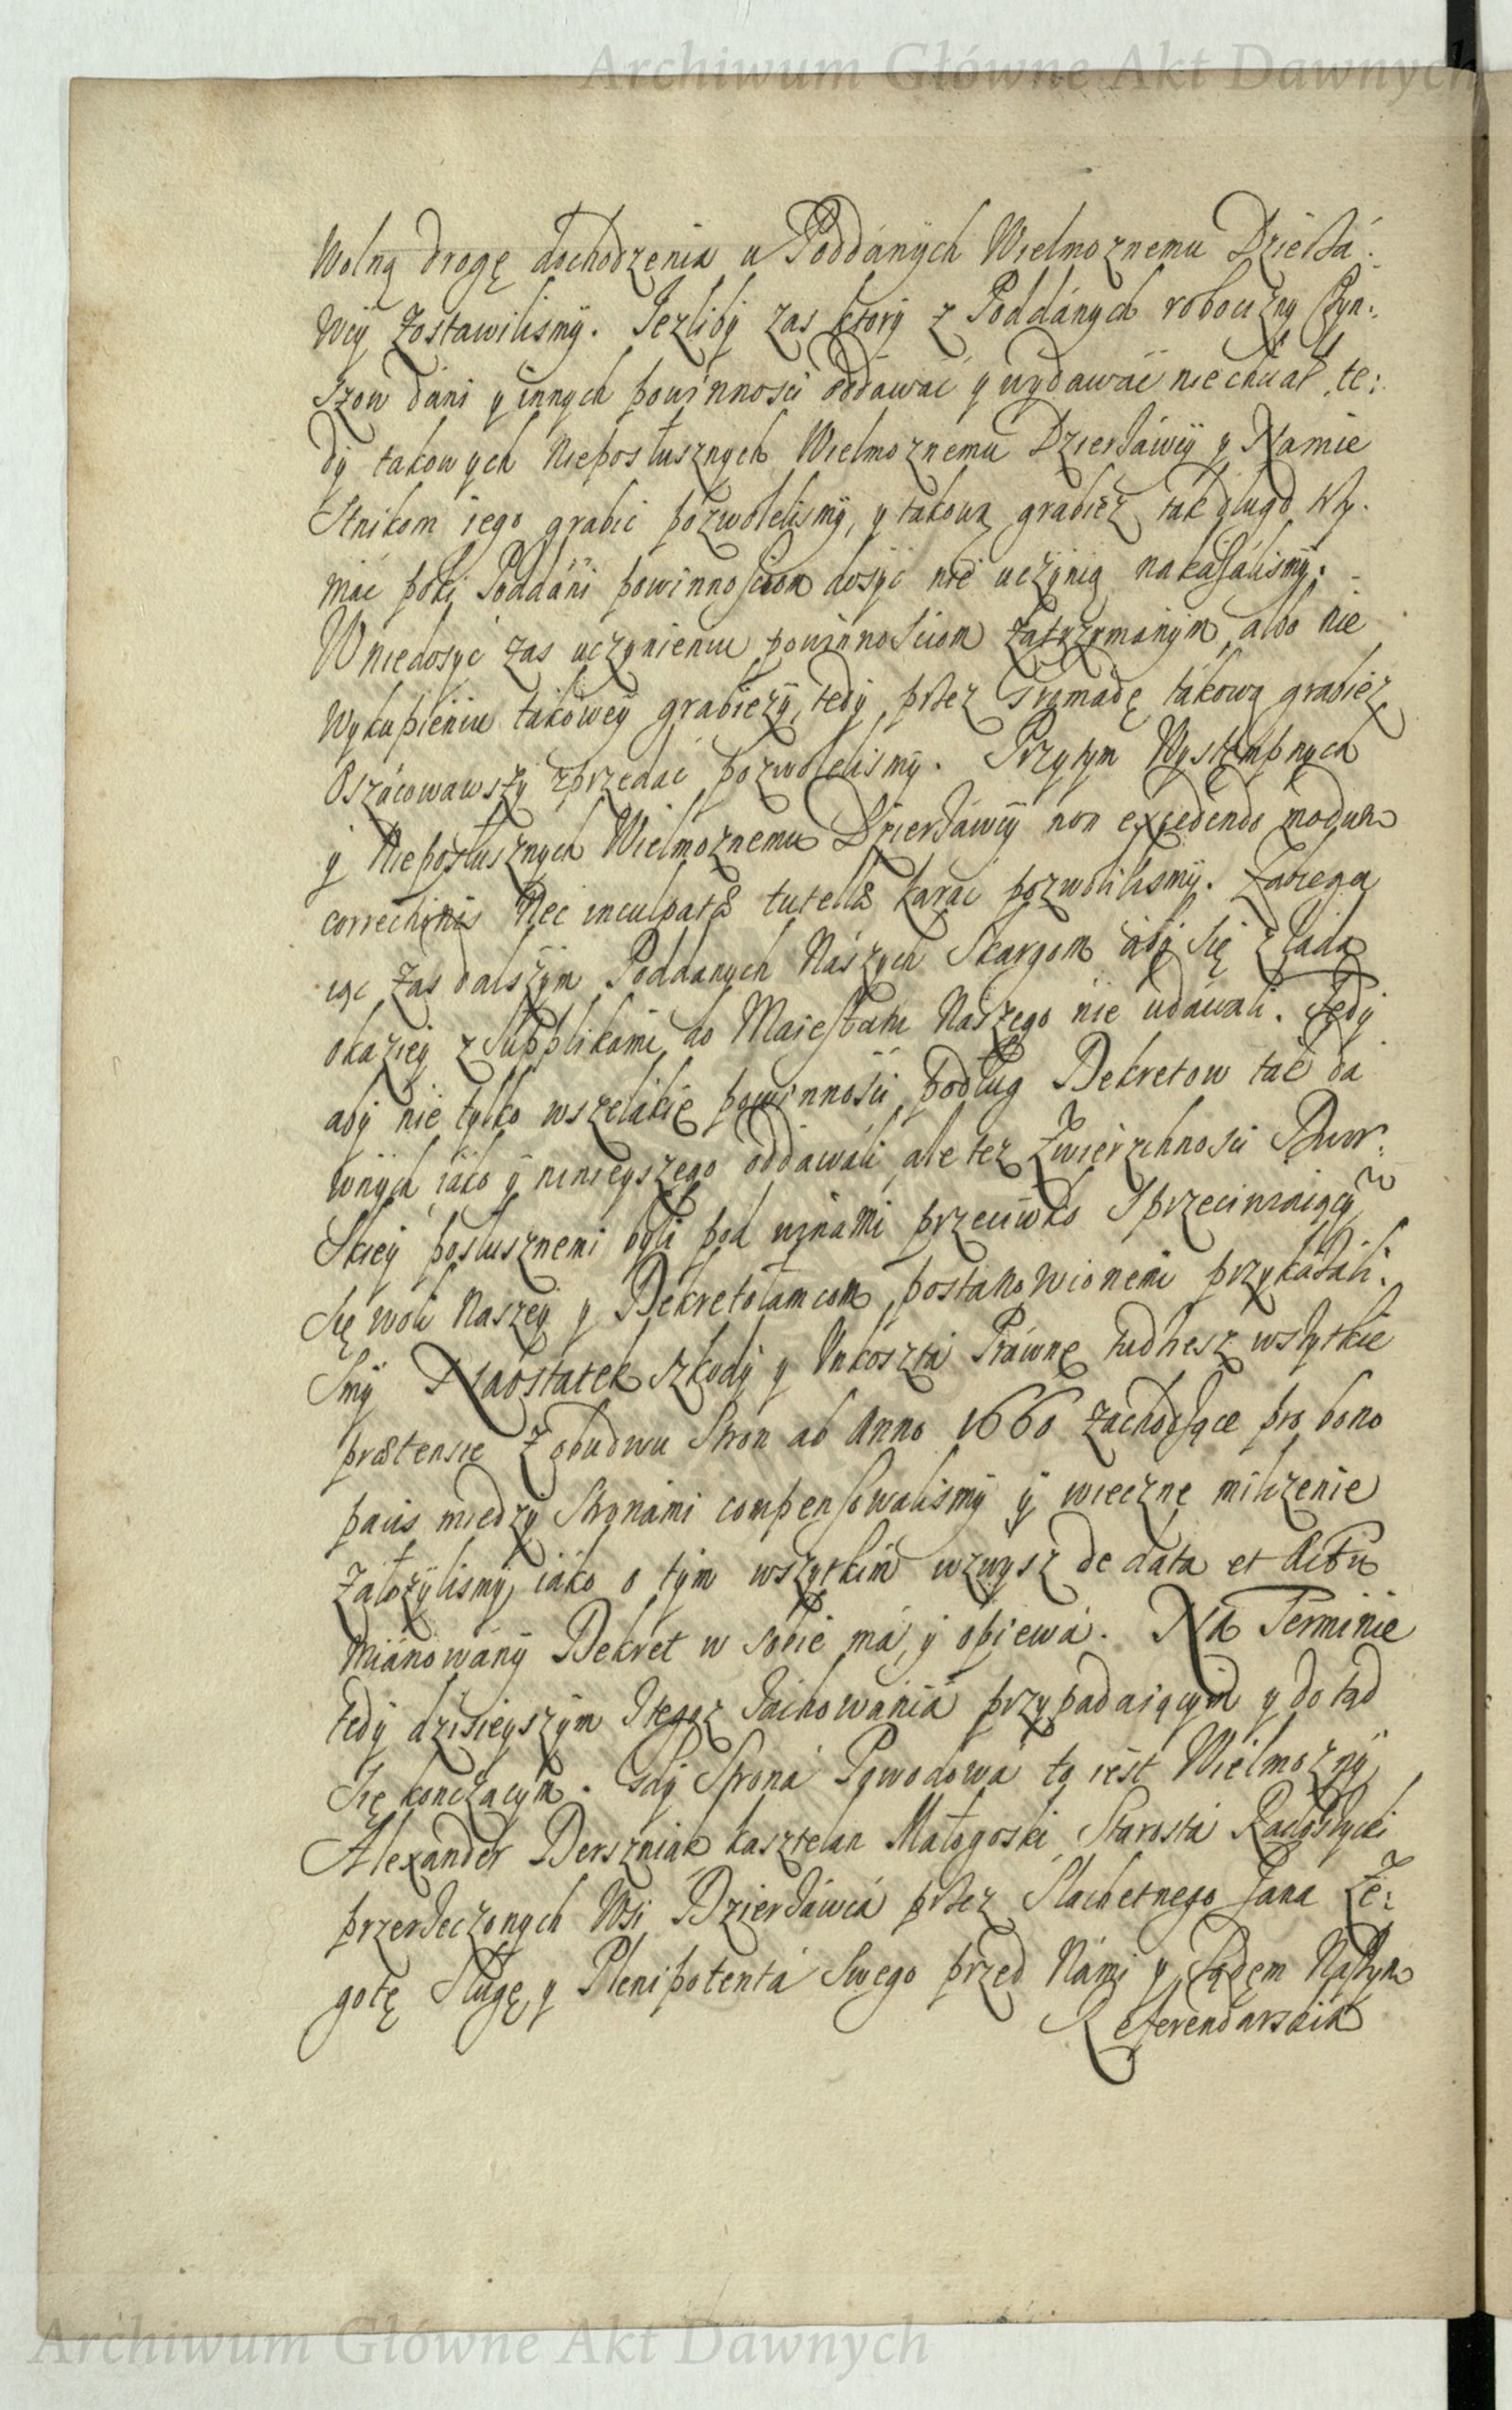 Archiwum Główne Akt Dawnych
Wolną drogę dochodzenia u Poddánych Wielmoznemu Dzierżá:
wcÿ zostawilismÿ. Jezlibÿ zas ktorÿ z Poddánych robocizny Czyn:
szow dáni y innych powinnosci oddawáć y wydawáć niechciał, te:
dÿ takowych Nieposłusznych Wielmoznemu Dzierżáwcÿ y Namie
stnikom iego grabić pozwolelismÿ, y takową grabież tak długo trzy:
máć poki Poddáni powinnosciom dosÿć nie uczÿnią nakazálismÿ.
W niedosyć zas uczynieniu powinnosciom zatrzymánÿm, albo nie
wykupieniu takowey grabiezÿ, tedÿ przez Gromadę takową grabież
oszácowawszÿ zprzedáć pozwolelismÿ. Przytym Wystempnych
ÿ Nieposłusznych Wielmoznemu Dzierżáwcÿ non excedendo modum
correctionis Nec inculpatæ tutellæ karáć pozwolilismÿ. Zabiega
iąc zas dalszÿm Poddanych Nászych Skargom ábÿ się z lada
okaziey z Supplikámi do Maiestatu Nászego nie udáwali. Tedÿ
abÿ nie tylko wszelákie powinności podług Dekretow ták dá
wnych iáko ÿ ninieyszego oddáwáli, ale tez Zwierzchnosci Dwor:
skiey posłusznemi byli pod winámi przeciwko Sprzeciwiaiącÿm
się woli Naszey y Dekretołamcom postanowionemi przykazali:
smÿ Naostatek szkodÿ y Unkoszta Práwne tudziesz wszytkie
prætensie z obudwu Stron ab Anno 1660 zachodzące pro bono
pacis między Stronámi compensowalismÿ ÿ wieczne milczenie
załozÿlismÿ, iáko o tÿm wszytkim wzwysz de data et Actu
miánowánÿ Dekret w sobie má, ÿ opiewá. Ná Terminie
tedÿ dzisieyszÿm z tegoz Záchowániá przypadaiącym y dotąd
się konczącÿm. Gdÿ Strona Powodowa to iest Wielmoznÿ
Alexander Derszniak Kasztelan Małogoski Starosta Radoszycki
przerzeczonych Wsi Dzierżáwca przez Slachetnego Jana Że:
gotę Sługę y Plenipotentá Swego przed Námi y Sądem Nászym
Referendarskim
Archiwum Główne Akt Dawnych